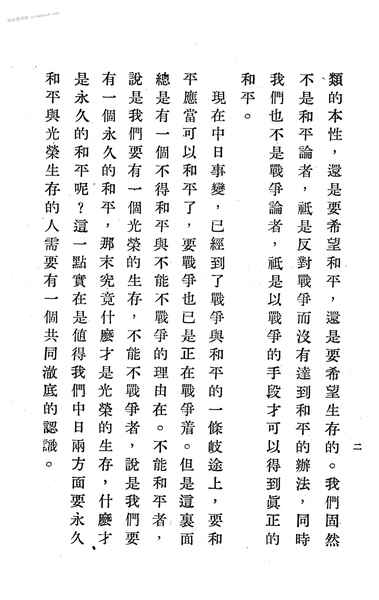 二
類的本性，還是要希望和平，還是要希望生存的。我們固然
不是和平論者，祗是反對戰爭而沒有達到和平的辦法，同時
我們也不是戰爭論者，祗是以戰爭的手段才可以得到眞正的
和平。
現在中日事變，已經到了戰爭與和平的一條歧途上，要和
平應當可以和平了，要戰爭也已是正在戰爭着。但是這裏面
總是有一個不得和平與不能不戰爭的理由在。不能和平者，
說是我們要有一個光榮的生存，不能不戰爭者，說是我們要
有一個永久的和平，那末究竟什麼才是光榮的生存，什麼才
是永久的和平呢？這一點實在是値得我們中日兩方面要永久
和平與光榮生存的人需要有一個共同澈底的認識。